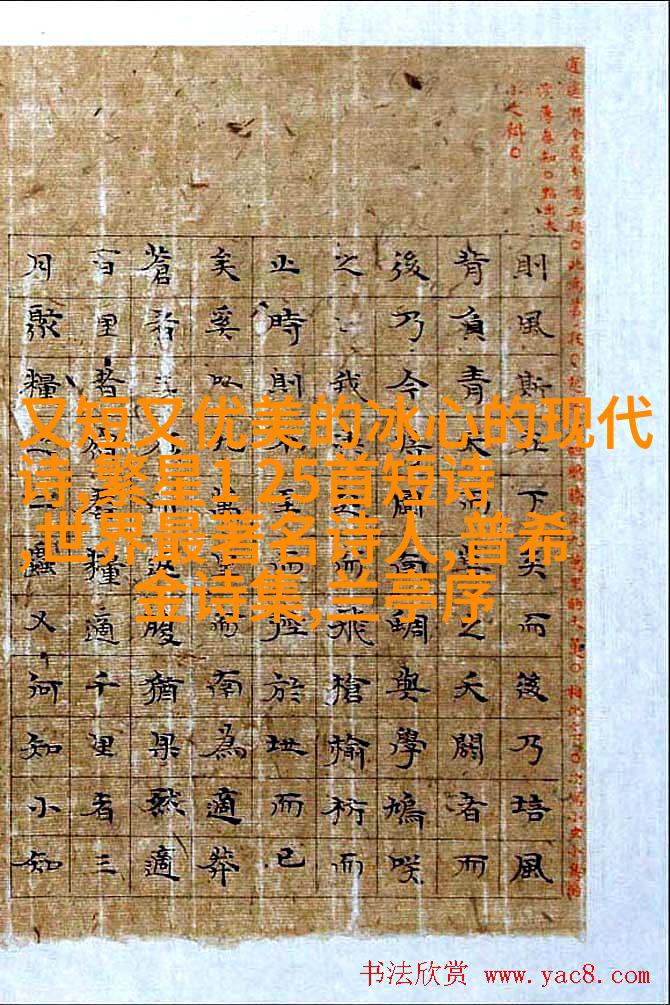 又短又优美的冰心的现代
诗,繁星1 25首短诗
,世界最著名诗人,普希
金诗集,兰亭序
小大辯。
則風斯在下矣而後乃培風
背負青天而莫之夭閼者而
後乃今將圖南蜩與學鳩咲
之我決起而飛槍榆枋而
止時則不至而控於地而已
矣奚以九萬里而南為適莽
蒼者三而返腹猶果然適
百里者宿舂糧適千里者三
月聚糧之二蟲又何知小知
书法欣赏 www.yac8.com